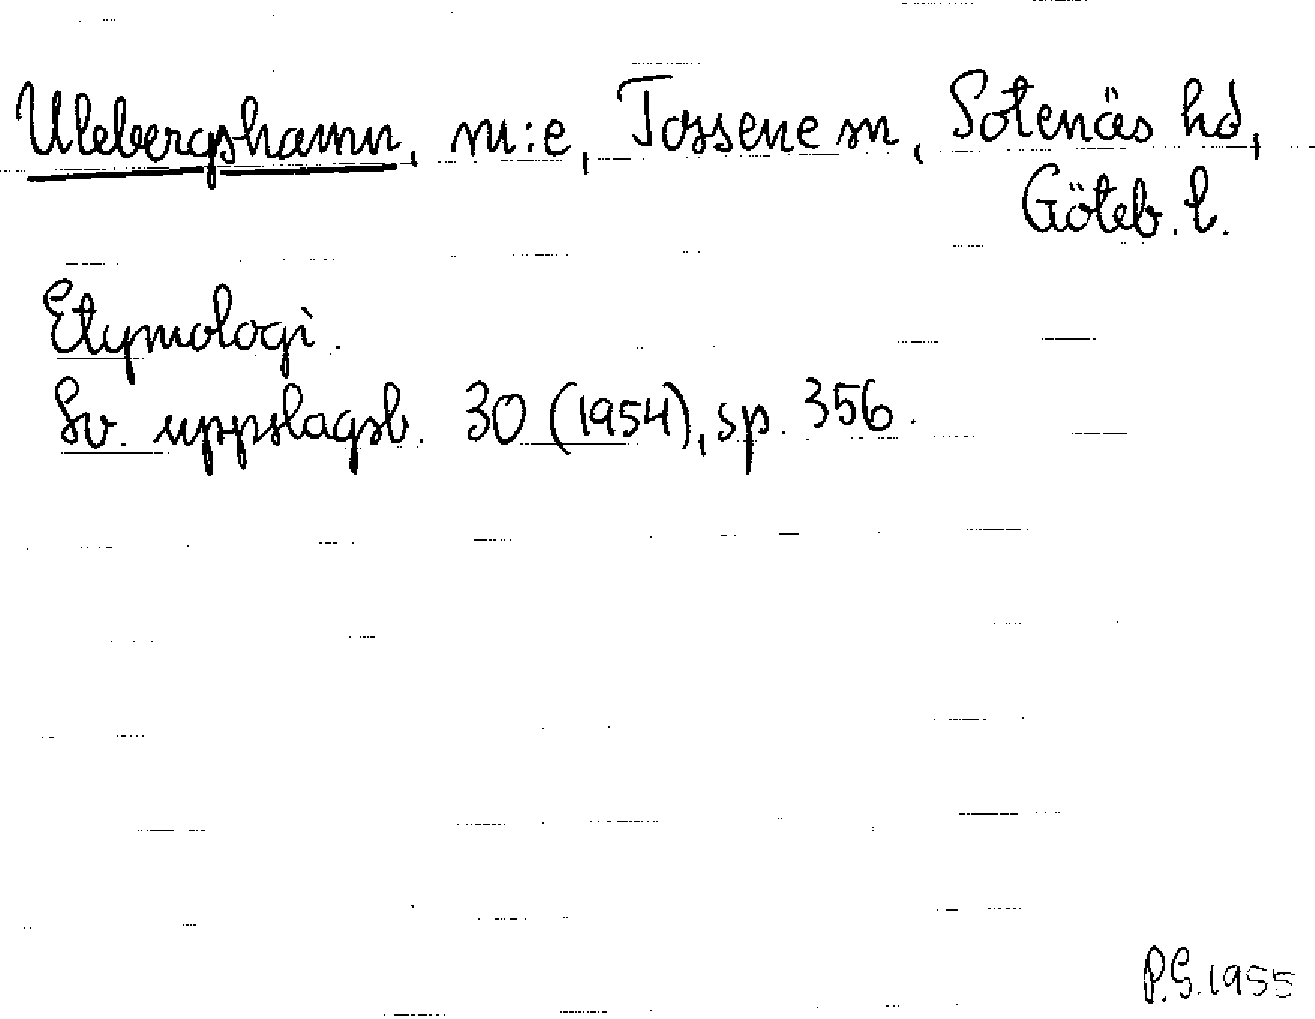 Ulebergshamn, m:e, Tossene sn, Sotenäs hd,
Göteb. l.
Etymologi.
Sv. uppslagsb. 30 (1954), sp. 356.
P.G. 1955